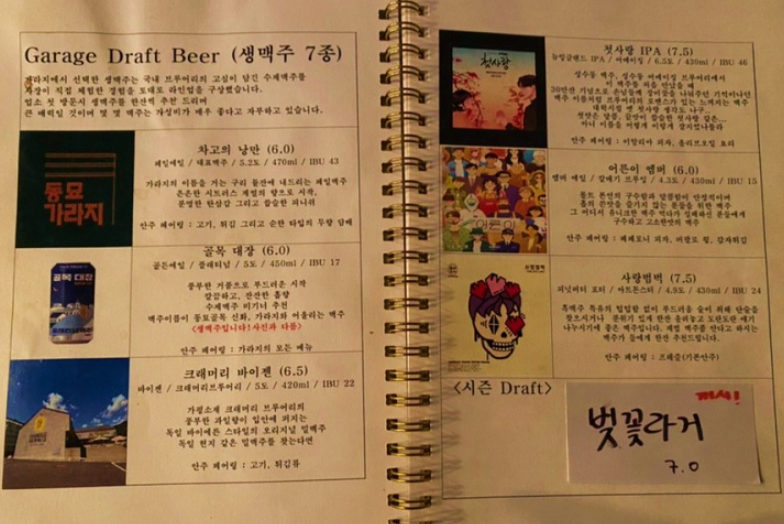 Garage Draft Beer (생맥주 7종)
가라지에서 선택한 생맥주는 국내 브루어리의 고심이 담긴 수제맥주를
사장이 직접 체험한 경험을 토대로 라인업을 구상했습니다.
업소 첫 방문시 생맥주를 한잔씩 추천 드리며
큰 매력일 것이며 몇 몇 맥주는 가성비가 매우 좋다고 자부하고 있습니다.
동묘
가라지
차고의 낭만 (6.0)
페일에일 / 대표맥주 / 5.2도 / 470ml / IBU 43
가라지의 이름을 거는 구리 돌잔에 내드리는 페일맥주
은은한 시트러스 계열의 향으로 시작,
분명한 탄산감 그리고 쌉쓸한 피니쉬
안주 페어링 : 고기, 튀김 그리고 순한 타입의 두향 담배
골목 대장
골목 대장 (6.0)
골든에일 / 플래티넘 / 5도 / 450ml / IBU 17
풍부한 거품으로 부드러운 시작
깔끔하고, 잔잔한 홉향
수제맥주 비기너 추천
맥주이름이 동묘골목 신화, 가라지와 어울리는 맥주
<생맥주입니다! 사진과 다름>
안주 페어링 : 가라지의 모든 메뉴
크래머리 바이젠 (6.5)
바이젠 / 크래머리브루어리 / 5도 / 420ml / IBU 22
가평소재 크래머리 브루어리의
풍부한 과일향이 입안에 퍼지는
독일 바이에른 스타일의 오리지널 밀맥주
독일 현지 같은 밀맥주를 찾는다면
안주 페어링 : 고기, 튀김류
첫사랑
첫사랑 IPA (7.5)
뉴잉글랜드 IPA / 어메이징 / 6.5도 / 430ml / IBU 46
성수동 맥주, 성수동 어메이징 브루어리에서
이 맥주를 처음 만났을 때
맥주 이름처럼 브루어리의 로맨스가 있는 느껴지는 맥주
대학시절 옛 첫사랑 생각도 나구...
첫맛은 달콤, 끝맛이 쌉쓸한 첫사랑 같은...
카나 이름을 어떻게 이렇게 잘지었나몰라
안주 페어링 : 이탈리아 피자, 올리브오일 요리
어른이
어른이 앰버 (6.0)
앰버 에일 / 갈매기 브루잉 / 4.3도 / 430ml / IBU 15
몰트 본연의 구수함과 달콤함이 안정적이며
홉의 쓴맛을 즐기지 않는 분들을 위한 맥주
그 어디서 유니크한 맥주 먹다가 실패하신 분들에게
구수하고 고소한맛의 맥주
안주 페어링 : 페페로니 피자, 버팔로 윙, 감자튀김
사랑범벅
사랑범벅 (7.5)
피넛버터 포터 / 아트몬스터 / 4.9도 / 430ml / IBU 24
흑맥주 특유의 텁텁함 없이 부드러운 술이 위해 단술을
찾으시거나 분위기 있게 한잔 올려놓고 도란도란 얘기
나누시기에 좋은 맥주입니다. 제법 맥주좀 싼다고 하지는
맥주가 뭘에게 한잔 추천드립니다.
안주 페어링 : 프레즐(기본안주)
<시즌 Draft>
벚꽃라거
7.0